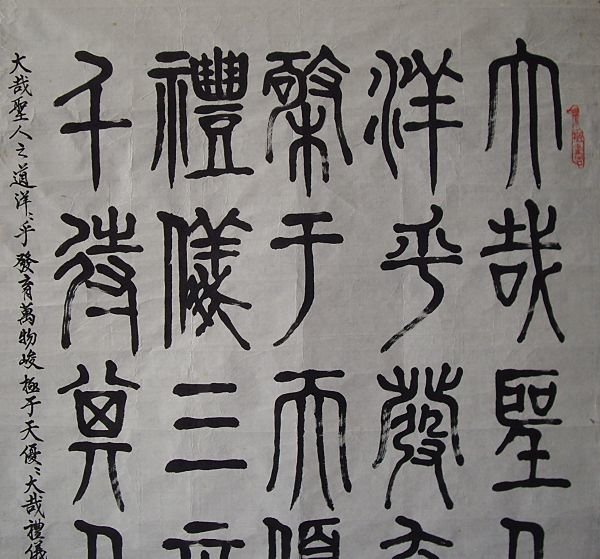 大哉聖人
洋乎發育
極于天優
禮儀三
千待其人
大哉聖人之道洋〻乎發育萬物峻極于天優〻大哉禮儀